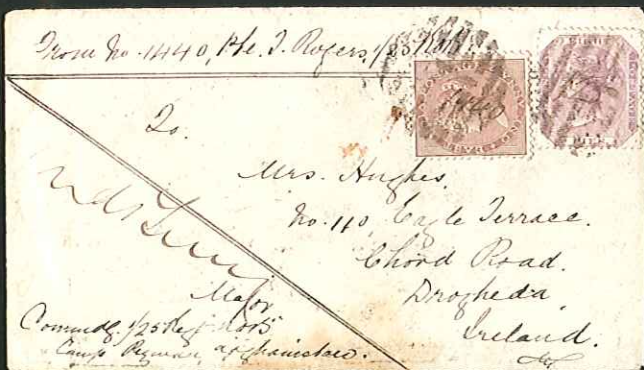 From No. 1440, Pte. J. Rogers, 1/25 Regt
To.
Mrs. Hughes,
No. 110, Eagle Terrace.
Chord Road.
Drogheda,
Ireland.
Major
Commdg. 1/25 Regt
Camp Afghanistan.